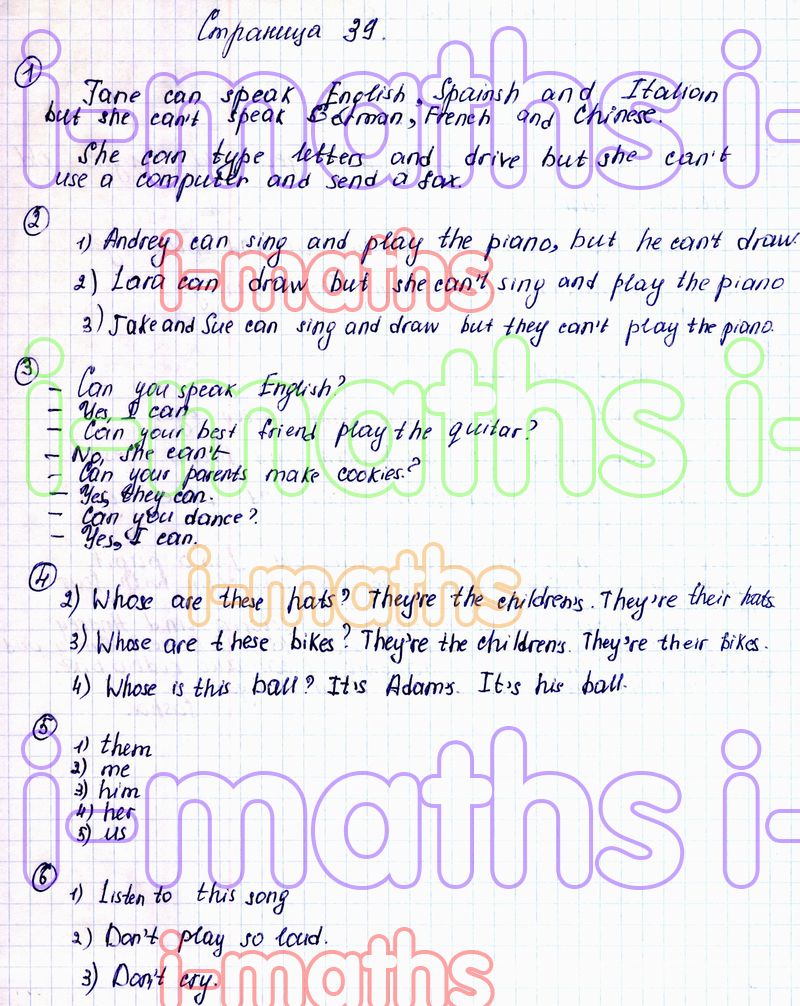 Страница 39.
1
Jane can speak English, Spainsh and Italian
but she can't speak German, French and Chinese.
She can type letters and drive but she can't
use a computer and send a fax.
2
1) Andrey can sing and play the piano, but he can't draw.
2) Lara can draw but she can't sing and play the piano
3) Jake and Sue can sing and draw but they can't play the piano.
3
– Can you speak English?
– Yes, I can
– Can your best friend play the guitar?
– No, she can't
– Can your parents make cookies?
– Yes, they can.
– Can you dance?
– Yes, I can.
4
2) Whose are these hats? They're the children's. They're their hats
3) Whose are these bikes? They're the children's. They're their bikes.
4) Whose is this ball? It's Adam's. It's his ball.
5
1) them
2) me
3) him
4) her
5) us
6
1) Listen to this song
2) Don't play so loud.
3) Don't cry.
i-maths i-
i-maths
i-maths i-
i-maths
i-maths i-
i-maths